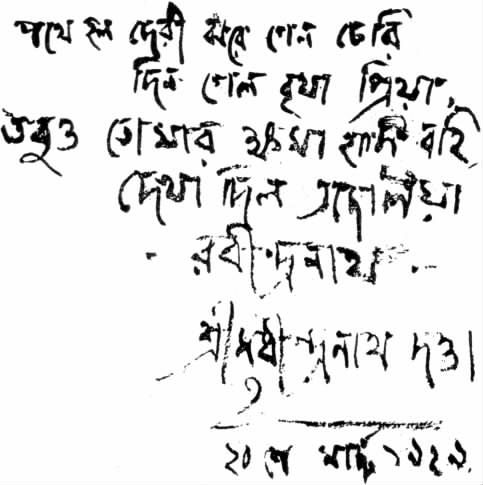 পথে হল দেরী ঝরে গেল চেরি
দিন গেল বৃথা প্রিয়া,
তবুও তোমার ক্ষমা হাসি বহি
দেখা দিল এজেলিয়া
রবীন্দ্রনাথ
শ্রীসুধীন্দ্রনাথ দত্ত।
২০শে মার্চ্চ ১৯২৯